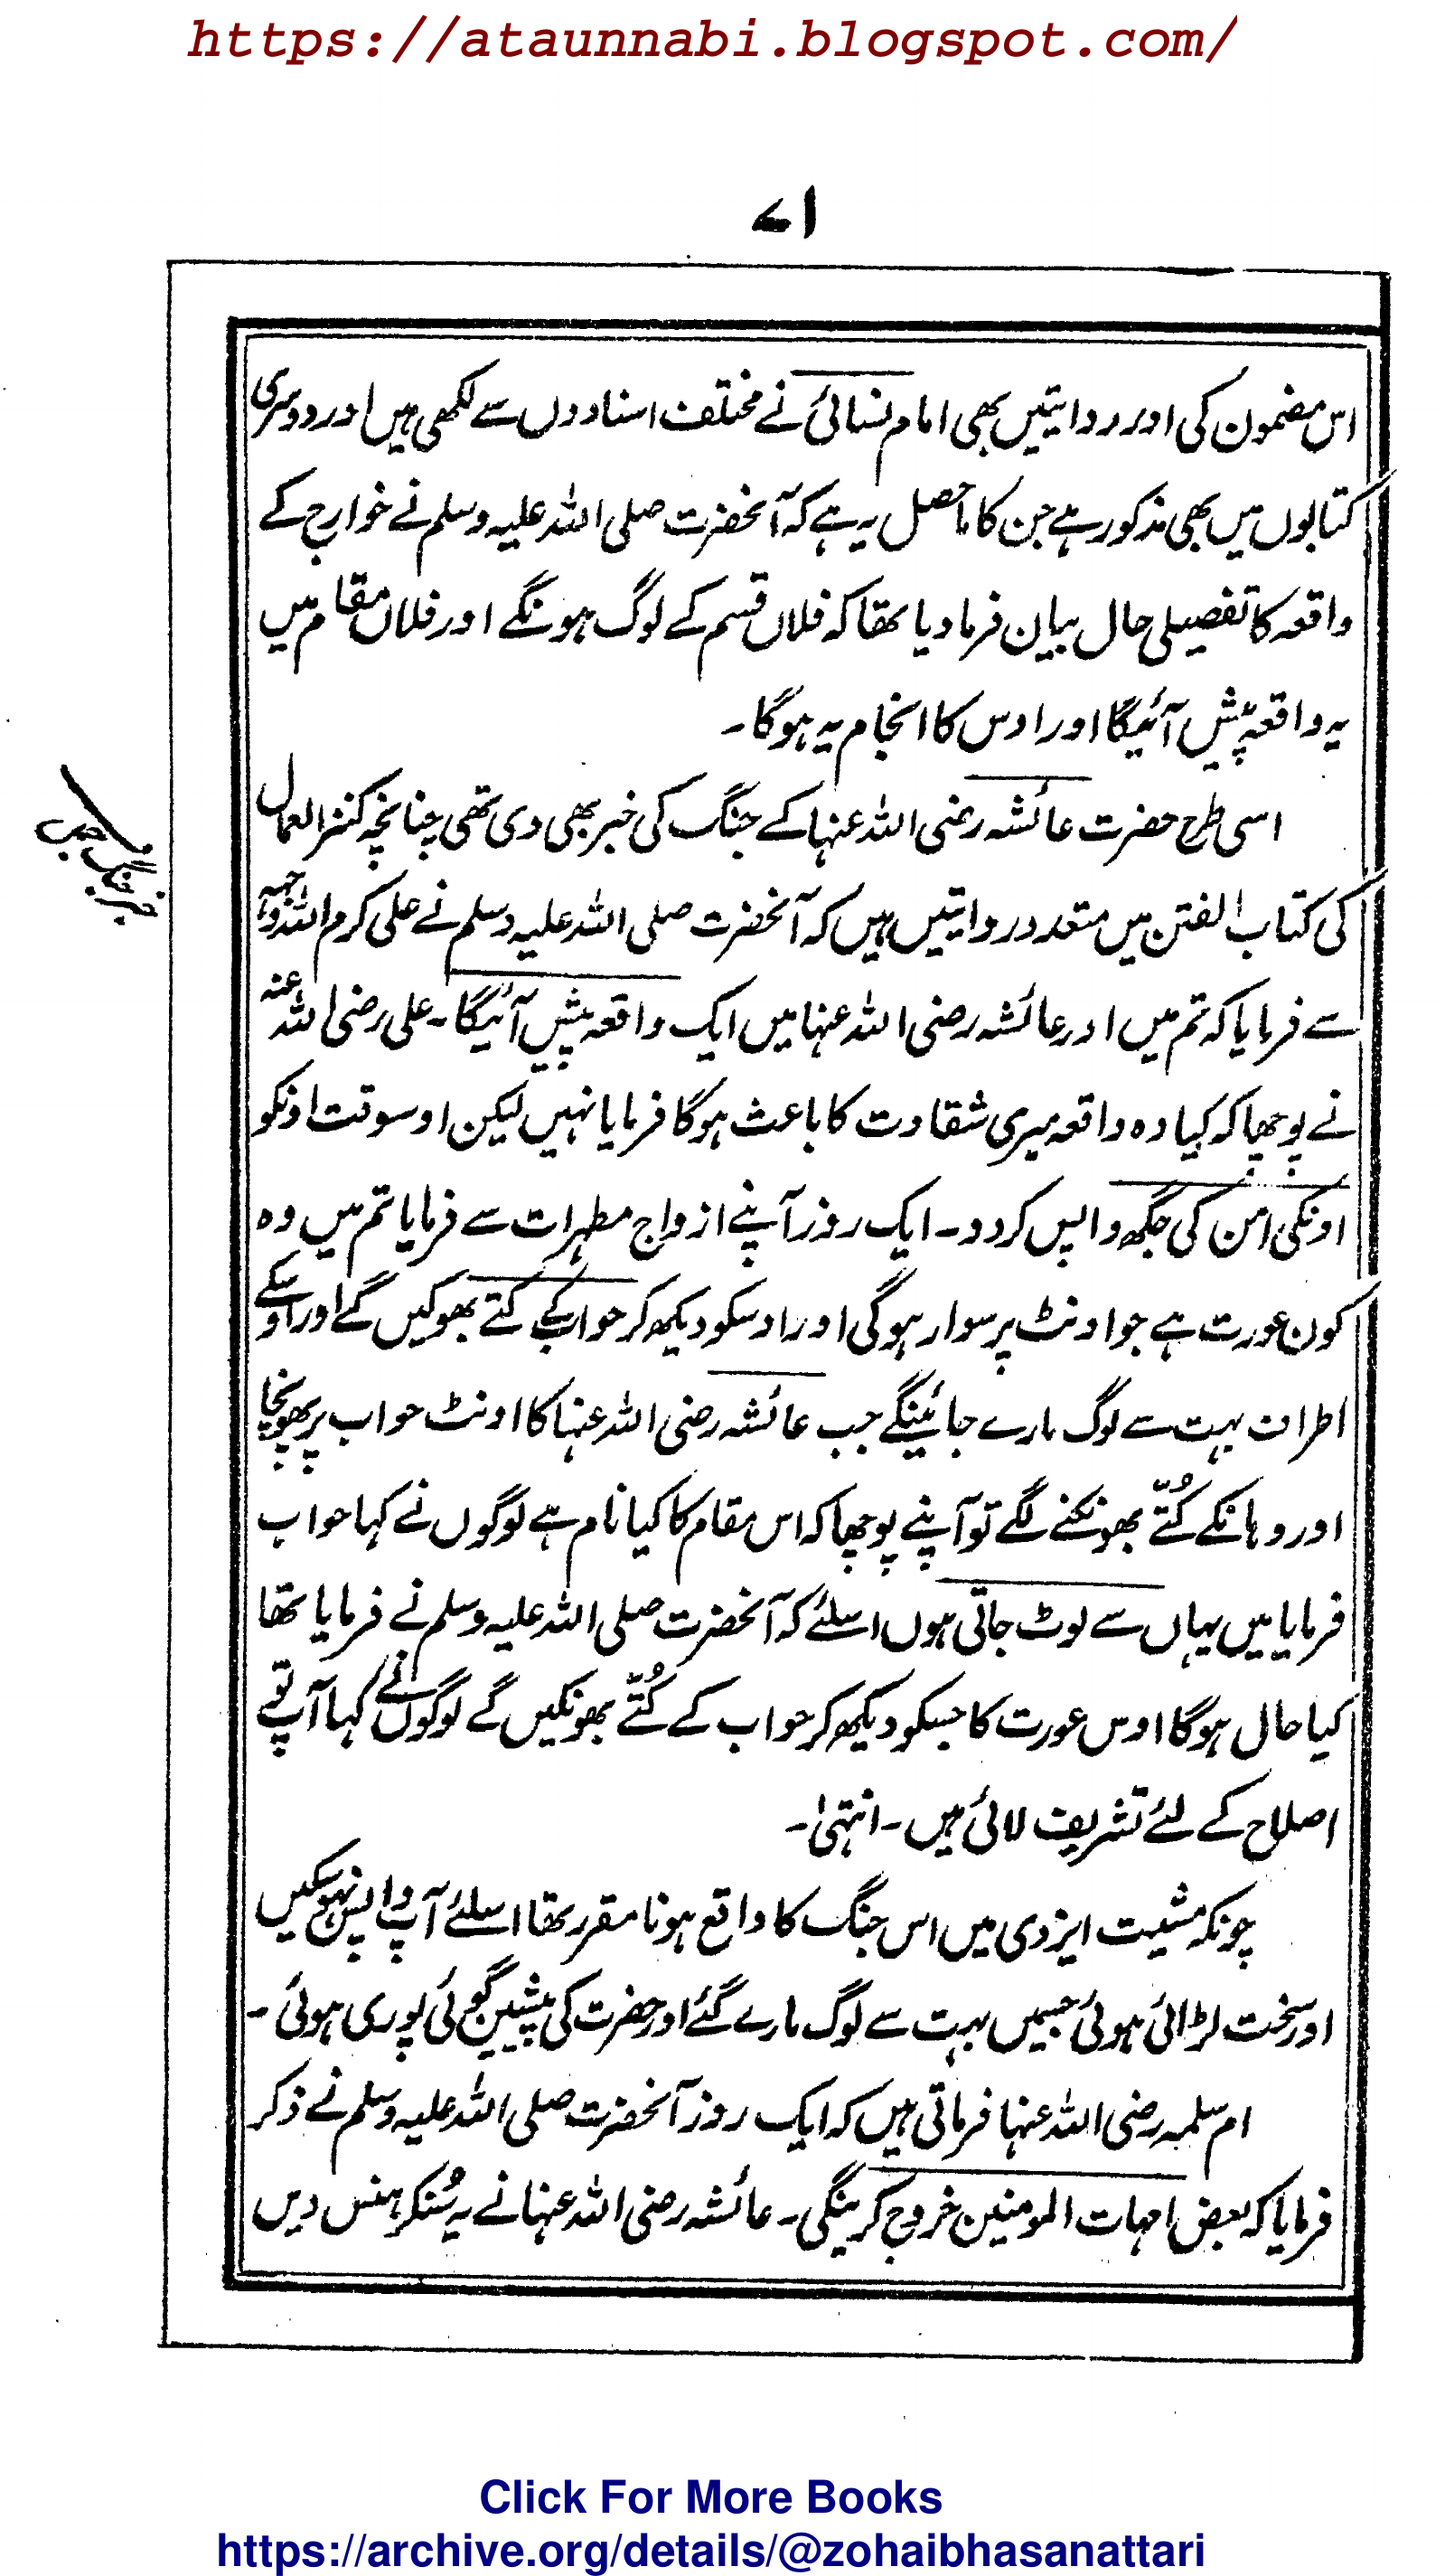 https://ataunnabi.blogspot.com/
۷۱
اس مضمون کی اور روایتیں بھی امام نسائیؒ نے مختلف اسنادوں سے لکھی ہیں اور دوسری
کتابوں میں بھی مذکور ہے جن کا ماحصل یہ ہے کہ آنحضرت صلی اللہ علیہ وسلم نے خوارج کے
واقعہ کا تفصیلی حال بیان فرما دیا تھا کہ فلاں قسم کے لوگ ہونگے اور فلاں مقام میں
یہ واقعہ پیش آئیگا اور اوس کا انجام یہ ہوگا۔
اسی طرح حضرت عائشہ رضی اللہ عنہا کے جنگ کی خبر بھی دی تھی چنانچہ کنز العمال
کی کتاب الفتن میں متعدد روایتیں ہیں کہ آنحضرت صلی اللہ علیہ وسلم نے علی کرم اللہ وجہہ
سے فرمایا کہ تم میں اور عائشہ رضی اللہ عنہا میں ایک واقعہ پیش آئیگا۔ علی رضی اللہ عنہ
نے پوچھا کہ کیا وہ واقعہ میری شقاوت کا باعث ہوگا فرمایا نہیں لیکن اوسوقت اونکو
اونکی امن کی جگھ واپس کر دو۔ ایک روز آپنے ازواج مطہرات سے فرمایا تم میں وہ
کون عورت ہے جو اونٹ پر سوار ہوگی اور اوسکو دیکھ کر حواب کے کتے بھوکیں گے اور اوسکے
اطراف بہت سے لوگ مارے جائینگے جب عائشہ رضی اللہ عنہا کا اونٹ حواب پر پھونچا
اور وہانکے کُتّے بھونکنے لگے تو آپنے پوچھا کہ اس مقام کا کیا نام ہے لوگوں نے کہا حواب
فرمایا میں یہاں سے لوٹ جاتی ہوں اسلئے کہ آنحضرت صلی اللہ علیہ وسلم نے فرمایا تھا
کیا حال ہوگا اوس عورت کا جسکو دیکھ کر حواب کے کُتّے بھونکیں گے لوگوں نے کہا آپ تو
اصلاح کے لئے تشریف لائی ہیں۔ انتہیٰ۔
چونکہ مشیت ایزدی میں اس جنگ کا واقع ہونا مقرر تھا اسلئے آپ واپس نہوسکیں
اور سخت لڑائی ہوئی جسمیں بہت سے لوگ مارے گئے اور حضرت کی پیشین گوئی پوری ہوئی۔
ام سلمہ رضی اللہ عنہا فرماتی ہیں کہ ایک روز آنحضرت صلی اللہ علیہ وسلم نے ذکر
فرمایا کہ بعض امہات المومنین خروج کرینگی۔ عائشہ رضی اللہ عنہا نے یہ سُنکر ہنس دیں
خبر جنگ جمل
Click For More Books
https://archive.org/details/@zohaibhasanattari